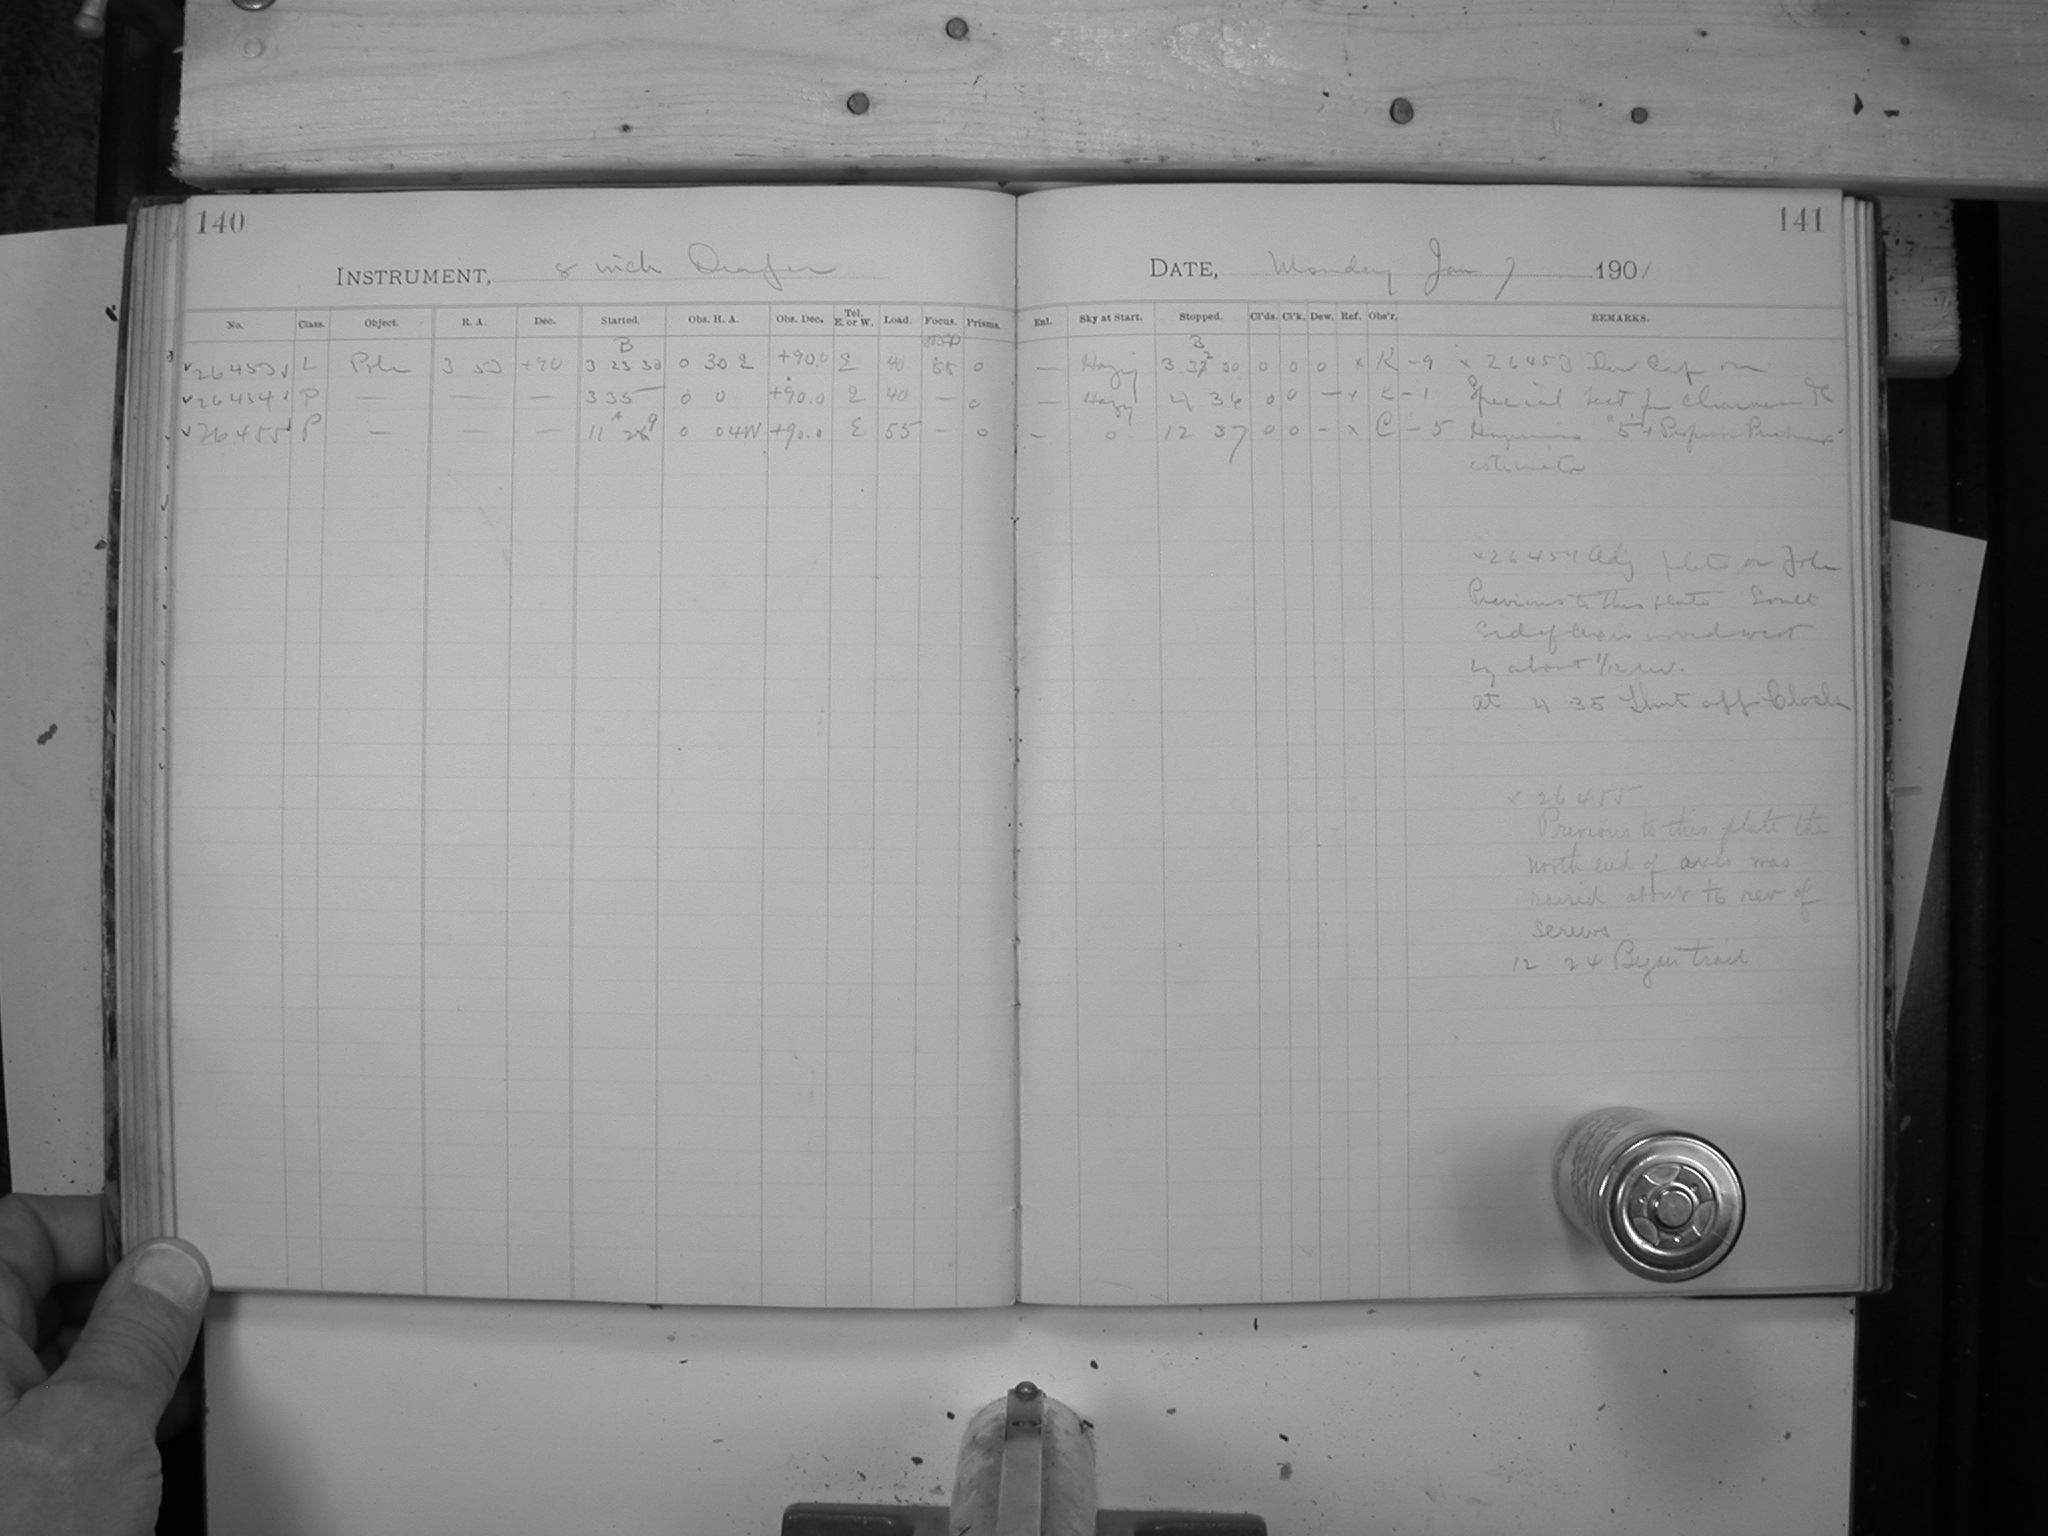 140
141
INSTRUMENT, 8 inch Draper
DATE, Monday Jan 7 1901
No. Class. Object. R. A. Dec. Started. Obs. H. A. Obs. Dec. Tel. E. or W. Load. Focus. Prisms.
Enl. Sky at Start. Stopped. Cl'ds. Cl'k. Dew. Ref. Obs'r. REMARKS.
B
B
26453 L Pole 3 53 +90 3 23 30 0 30 E +90.0 E 40 88 0
— Hazy 3 30 0 0 0 x K - 9 x 26453 Dew Cap on
26454 P — — — 3 35 0 0 +90.0 E 40 — 0
— Hazy 4 36 0 0 — x K - 1 Special test for clearness
A
26455 P — — — 11 0 04W +90.0 E 55 — 0
— 0 12 37 0 0 - x C - 5 Haziness "5"
estimate
x 26454 Adj plate on Pole
Previous to this plate South
End of Axis moved west
by about 1/12 rev.
at 4 35 Shut off Clock
x 26455
Previous to this plate the
north end of axis was
raised about rev of
screws
12 24 Began trail